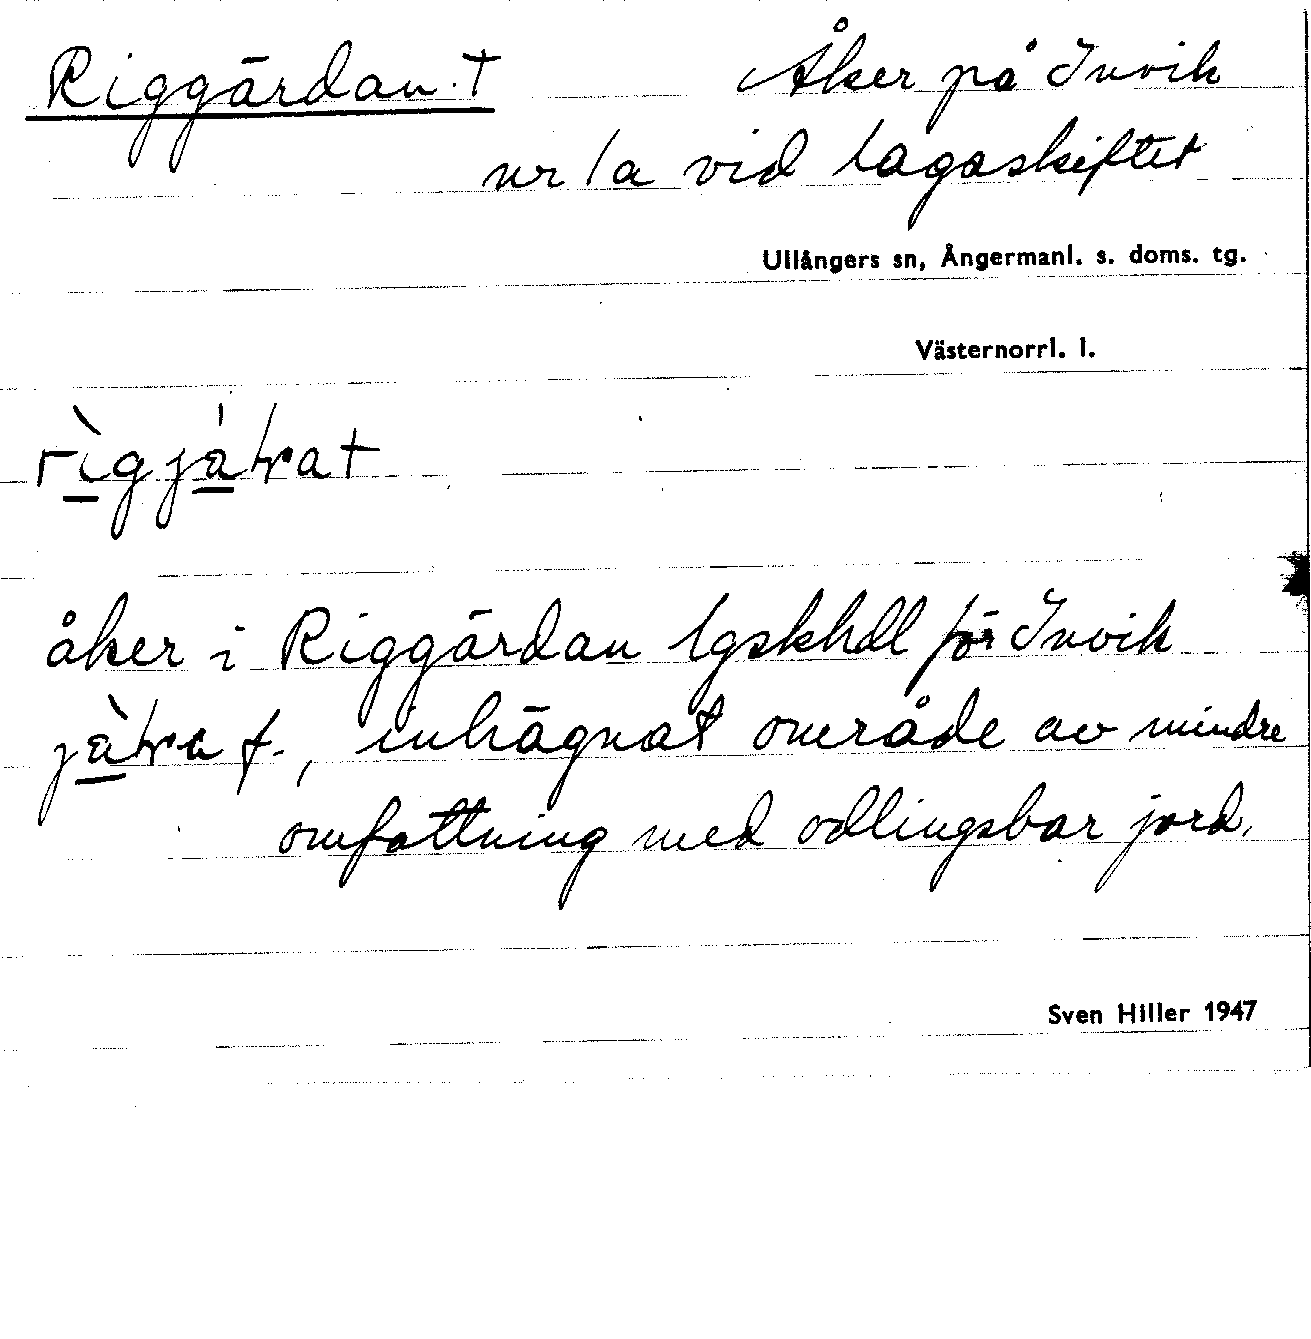 Riggärdan † Åker på Invik
nr 1a vid lagaskiftet
Ullångers sn, Ångermanl. s. doms. tg.
Västernorrl. l.
åker i Riggärdan lgskhdl för Invik
f., inhägnat område av mindre
omfattning med odlingsbar jord.
Sven Hiller 1947